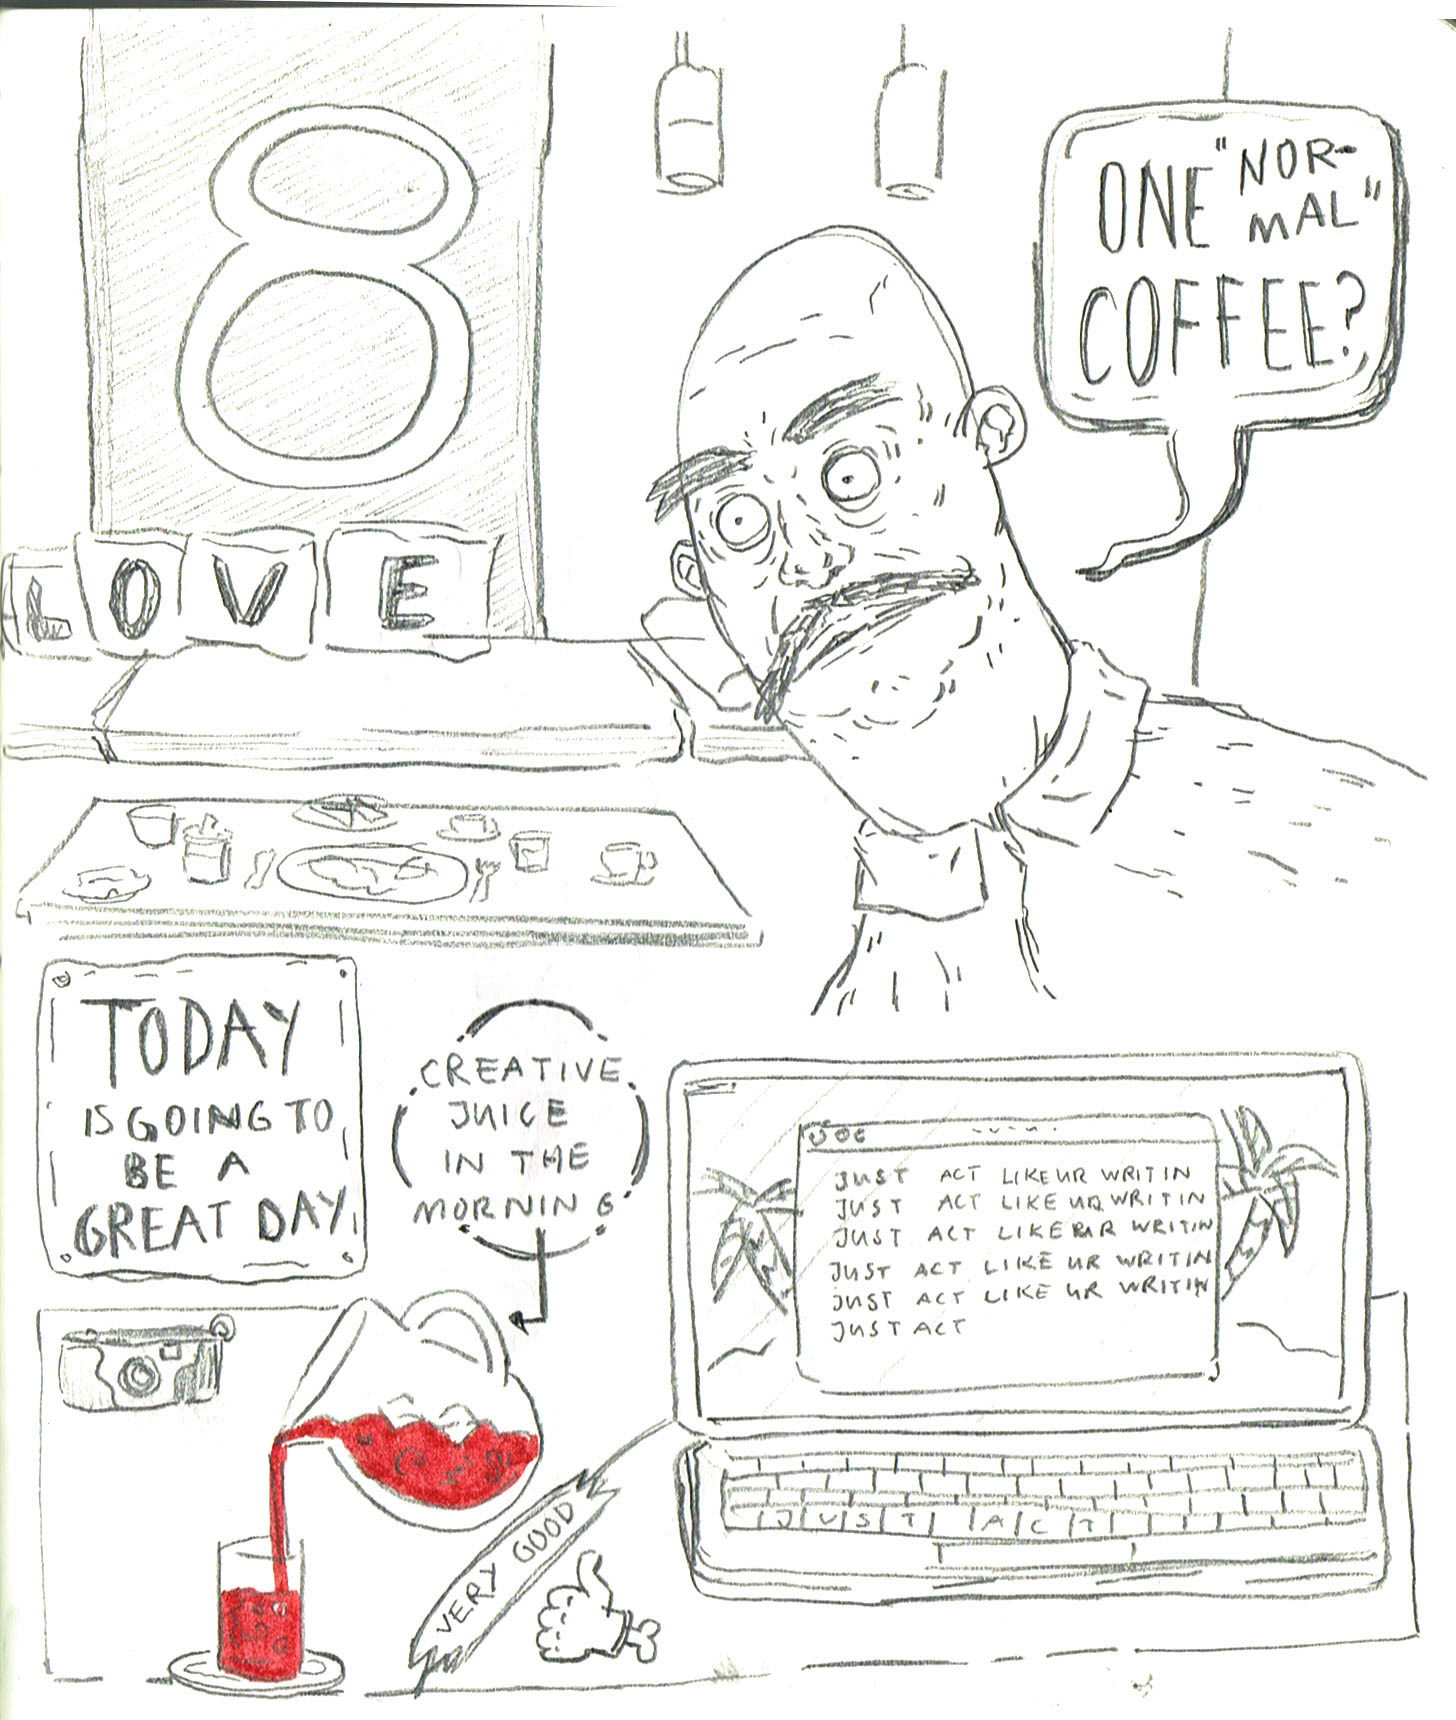 8
ONE "NOR-
MAL"
COFFEE?
LOVE
TODAY
IS GOING TO
BE A
GREAT DAY
CREATIVE
JUICE
IN THE
MORNING
JUST ACT LIKE UR WRITIN
JUST ACT LIKE UR WRITIN
JUST ACT LIKE UR WRITIN
JUST ACT LIKE UR WRITIN
JUST ACT LIKE UR WRITIN
JUST ACT
JUST ACT
VERY GOOD